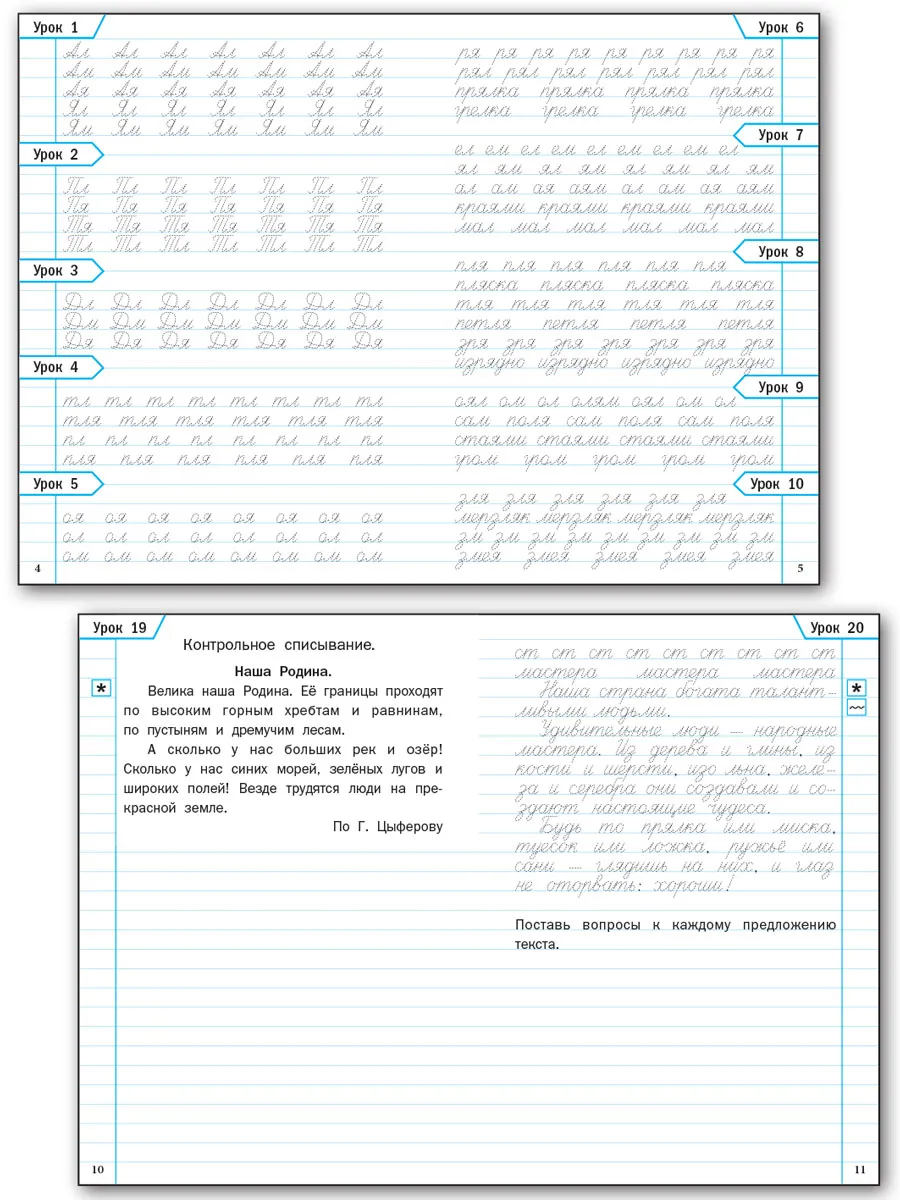 Урок 1
Ал Ал Ал Ал Ал Ал Ал
Ам Ам Ам Ам Ам Ам Ам
Ая Ая Ая Ая Ая Ая Ая
Ял Ял Ял Ял Ял Ял Ял
Ям Ям Ям Ям Ям Ям Ям
Урок 2
Пл Пл Пл Пл Пл Пл Пл
Пя Пя Пя Пя Пя Пя Пя
Тя Тя Тя Тя Тя Тя Тя
Тл Тл Тл Тл Тл Тл Тл
Урок 3
Дл Дл Дл Дл Дл Дл Дл
Дм Дм Дм Дм Дм Дм Дм
Дя Дя Дя Дя Дя Дя Дя
Урок 4
тл тл тл тл тл тл тл тл
тля тля тля тля тля тля
пл пл пл пл пл пл пл пл
пля пля пля пля пля пля
Урок 5
оя оя оя оя оя оя оя оя
ол ол ол ол ол ол ол ол
ом ом ом ом ом ом ом ом
4
Урок 6
ря ря ря ря ря ря ря ря ря
рял рял рял рял рял рял рял
прялка прялка прялка прялка
грелка грелка грелка грелка
Урок 7
ел ем ел ем ел ем ел ем ел
ял ям ял ям ял ям ял ям
ал ам ая аям ал ам ая аям
краями краями краями краями
мал мал мал мал мал мал
Урок 8
пля пля пля пля пля пля
пляска пляска пляска пляска
тля тля тля тля тля тля
петля петля петля петля
зря зря зря зря зря зря зря
изрядно изрядно изрядно изрядно
Урок 9
оял ом ол олям оял ом ол
сам поля сам поля сам поля
стаями стаями стаями стаями
гром гром гром гром гром
Урок 10
зля зля зля зля зля зля
мерзляк мерзляк мерзляк мерзляк
зм зм зм зм зм зм зм зм зм
змея змея змея змея змея
5
Урок 19
Контрольное списывание.
Наша Родина.
*
Велика наша Родина. Её границы проходят
по высоким горным хребтам и равнинам,
по пустыням и дремучим лесам.
А сколько у нас больших рек и озёр!
Сколько у нас синих морей, зелёных лугов и
широких полей! Везде трудятся люди на пре-
красной земле.
По Г. Цыферову
10
Урок 20
ст ст ст ст ст ст ст ст ст
мастера мастера мастера
*
Наша страна богата талант-
ливыми людьми.
Удивительные люди — народные
мастера. Из дерева и глины, из
кости и шерсти, изо льна, желе-
за и серебра они создавали и со-
здают настоящие чудеса.
Будь то прялка или миска,
туесок или ложка, ружьё или
сани — глядишь на них, и глаз
не оторвать: хороши!
Поставь вопросы к каждому предложению
текста.
11